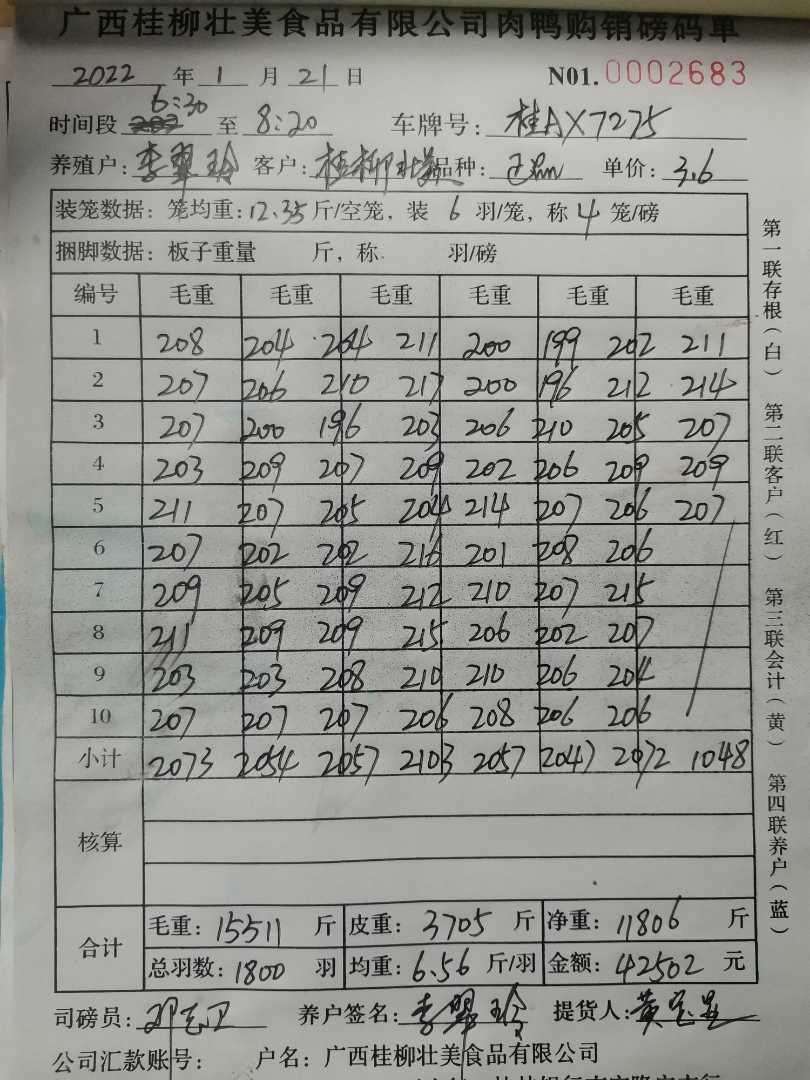 广西桂柳壮美食品有限公司肉鸭购销磅码单
2022 年 1 月 21 日 N01. 0002683
时间段 6:30 至 8:20 车牌号: 桂AX7275
养殖户: 李翠玲 客户: 桂柳壮美 品种: 单价: 3.6
装笼数据: 笼均重: 12.35 斤/空笼, 装 6 羽/笼, 称 4 笼/磅
捆脚数据: 板子重量 斤, 称 羽/磅
编号 毛重 毛重 毛重 毛重 毛重 毛重
1 208 204 204 211 200 199 202 211
2 207 206 210 217 200 196 212 214
3 207 200 196 203 206 210 205 207
4 203 209 207 209 202 206 209 209
5 211 207 205 204 214 207 206 207
6 207 202 202 216 201 208 206
7 209 205 209 212 210 207 215
8 211 209 209 215 206 202 207
9 203 203 208 210 210 206 204
10 207 207 207 206 208 206 206
小计 2073 2054 2057 2103 2057 2047 2072 1048
核算
合计 毛重: 15511 斤 皮重: 3705 斤 净重: 11806 斤
总羽数: 1800 羽 均重: 6.56 斤/羽 金额: 42502 元
司磅员: 邓志卫 养户签名: 李翠玲 提货人: 黄
公司汇款账号: 户名: 广西桂柳壮美食品有限公司
第一联存根(白) 第二联客户(红) 第三联会计(黄) 第四联养户(蓝)